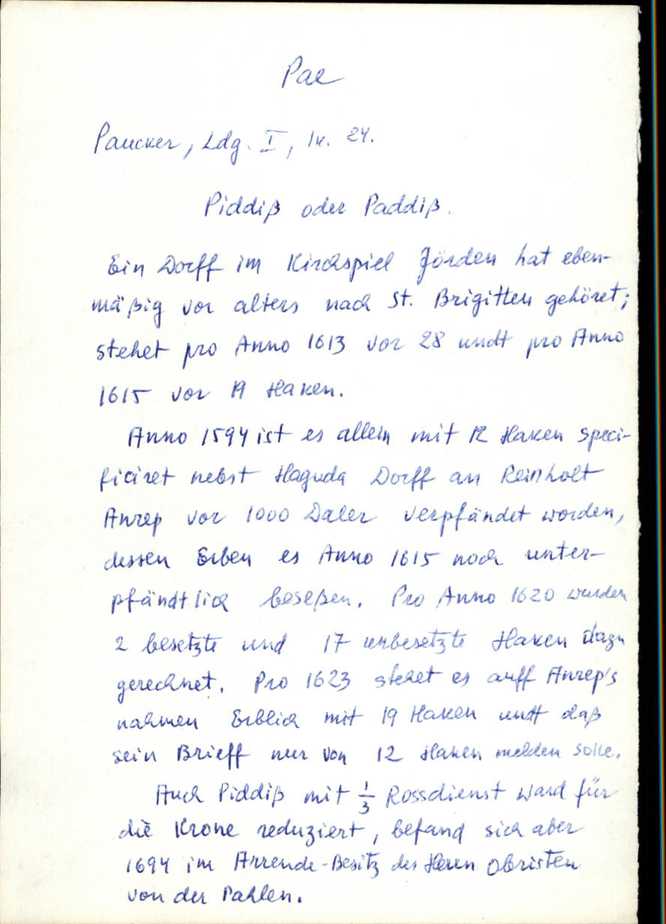 Pae
Paucker, Ldg. I, lk. 24.
Piddiß oder Paddiß.
Ein Dorff im Kirchspiel Jörden hat eben-
mäßig vor alters nach St. Brigitten gehöret;
stehet pro Anno 1613 vor 28 undt pro Anno
1615 vor 19 Haken.
Anno 1594 ist es allein mit 12 Haken speci-
ficiret nebst Haguda Dorff an Reinholt
Anrep vor 1000 Daler verpfändet worden,
dessen Erben es Anno 1615 noch unter-
pfändtlich beseßen. Pro Anno 1620 wurden
2 besetzte und 17 unbesetzte Haken dazu
gerechnet. Pro 1623 stehet es auff Anrep's
nahmen Erblich mit 19 Haken undt daß
sein Brieff nur von 12 Haken melden solle.
Auch Piddiß mit 1/3 Rossdienst ward für
die Krone reduziert, befand sich aber
1694 im Arrende-Besitz des Herrn Obristen
von der Pahlen.